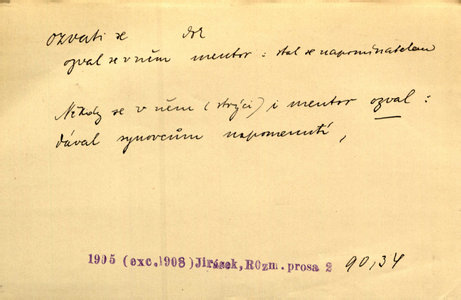 ozvati se dok
ozval se v něm mentor : stal se napomínatelem
Někdy se v něm (strýci) i mentor ozval :
dával synovcům napomenutí,
1905 (exc.1908) Jirásek, Rozm. prosa 2 90,34